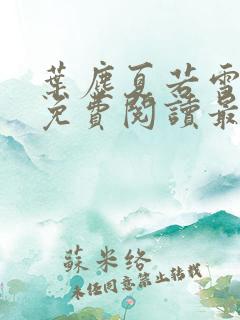 葉塵夏若雪
免費閱讀最
蘇米絡
未經同意禁止轉載